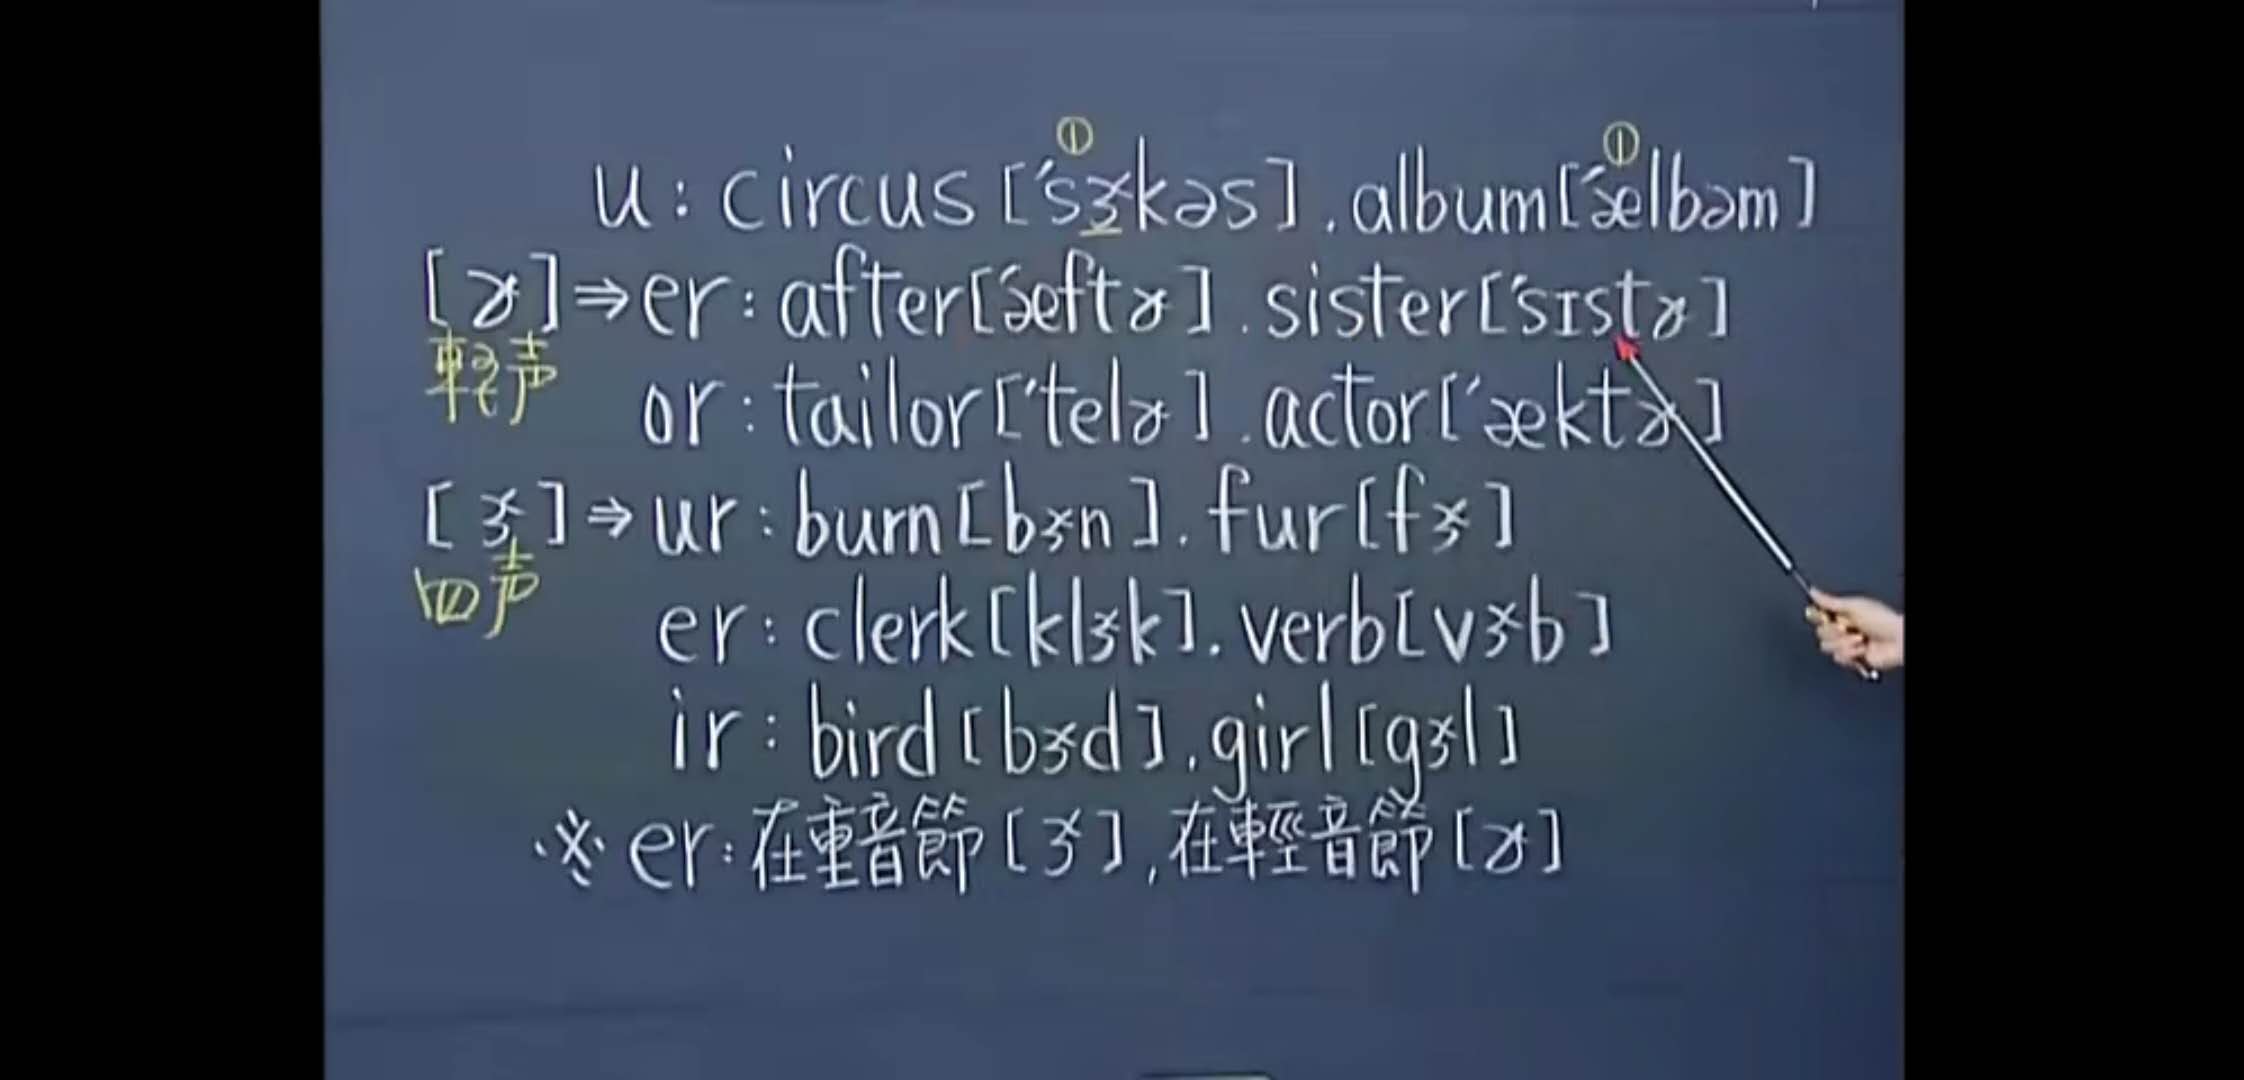 ①　①
u : circus ['sɝkəs] . album ['ælbəm]
[ɚ] ⇒ er : after ['æftɚ] . sister ['sɪstɚ]
輕声
or : tailor ['telɚ] . actor ['æktɚ]
[ɝ] ⇒ ur : burn [bɝn] . fur [fɝ]
四声
er : clerk [klɝk] . verb [vɝb]
ir : bird [bɝd] . girl [gɝl]
※ er : 在重音節 [ɝ] , 在輕音節 [ɚ]